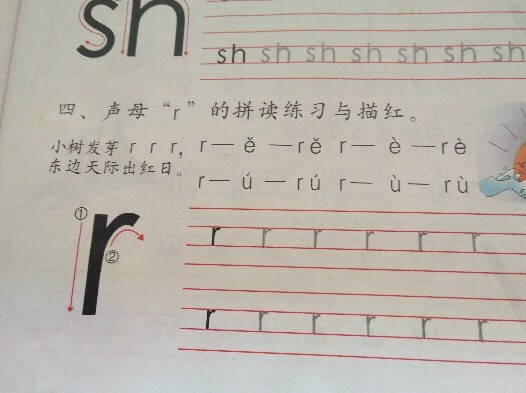 sh
sh sh sh sh sh sh sh
四、声母“r”的拼读练习与描红。
小树发芽 r r r,
东边天际出红日。
r— ě —rě r— è —rè
r— ú — rú r— ù— rù
① r ②
r r r r r r
r r r r r r